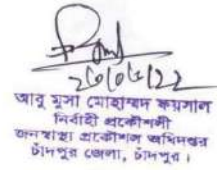 আবু মুসা মোহাম্মদ ফয়সাল
নির্বাহী প্রকৌশলী
জনস্বাস্থ্য প্রকৌশল অধিদপ্তর
চাঁদপুর জেলা, চাঁদপুর।